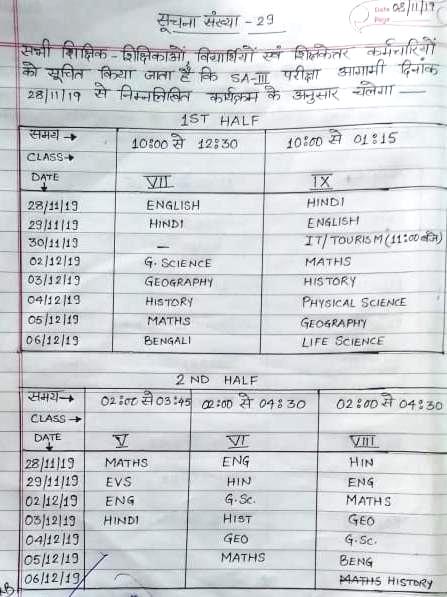 Date 08/11/19
Page
सूचना संख्या - 29
सभी शिक्षिक - शिक्षिकाओं, विद्यार्थियों एवं शिक्षकेतर कर्मचारियों
को सूचित किया जाता है कि SA-III परीक्षा आगामी दिनांक
28/11/19 से निम्नलिखित कार्यक्रम के अनुसार चलेगा —
1ST HALF
समय→ 10:00 से 12:30 10:00 से 01:15
CLASS→
DATE ↓ VII IX
28/11/19 ENGLISH HINDI
29/11/19 HINDI ENGLISH
30/11/19 — IT/TOURISM (11:00 बजे)
02/12/19 G. SCIENCE MATHS
03/12/19 GEOGRAPHY HISTORY
04/12/19 HISTORY PHYSICAL SCIENCE
05/12/19 MATHS GEOGRAPHY
06/12/19 BENGALI LIFE SCIENCE
2 ND HALF
समय→ 02:00 से 03:45 02:00 से 04:30 02:00 से 04:30
CLASS→
DATE ↓ V VI VIII
28/11/19 MATHS ENG HIN
29/11/19 EVS HIN ENG
02/12/19 ENG G.Sc. MATHS
03/12/19 HINDI HIST GEO
04/12/19 GEO G.Sc.
05/12/19 MATHS BENG
06/12/19 MATHS HISTORY